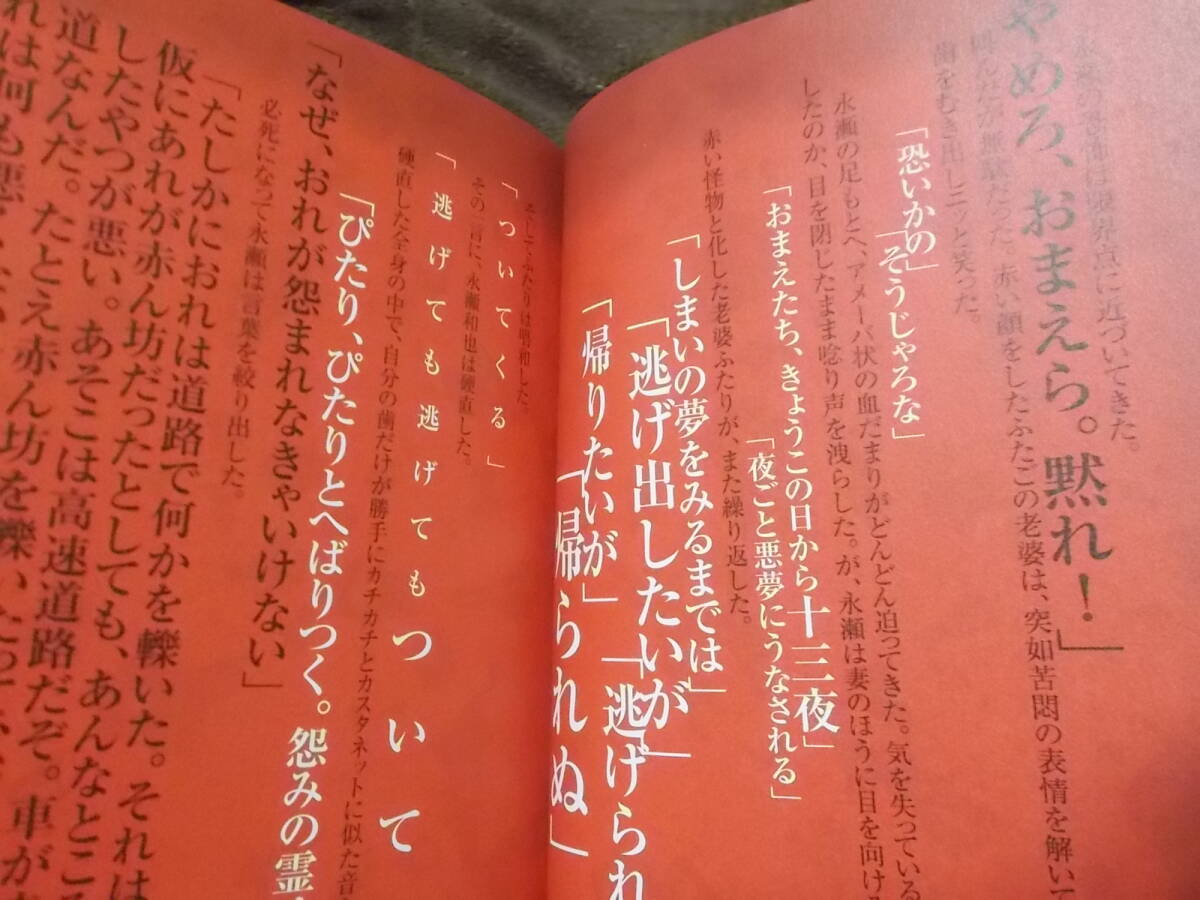 やめろ、おまえら。黙れ！」
は限界点に近づいてきた。
無駄だった。赤い顔をしたふたごの老婆は、突如苦悶の表情を解いて
歯をむき出しニッと笑った。
「恐いかの」
「そうじゃろな」
永瀬の足もとへ、アメーバ状の血だまりがどんどん迫ってきた。気を失っている
したのか、目を閉じたまま唸り声を洩らした。が、永瀬は妻のほうに目を向け
「おまえたち、きょうこの日から十三夜」
「夜ごと悪夢にうなされる」
赤い怪物と化した老婆ふたりが、また繰り返した。
「しまいの夢をみるまでは」
「逃げ出したいが」
「逃げられ
「帰りたいが」
「帰られぬ」
そしてふたりは唱和した。
「ついてくる」
その一言に、永瀬和也は硬直した。
「逃げても逃げてもついて
硬直した全身の中で、自分の歯だけが勝手にカチカチとカスタネットに似た音
「ぴたり、ぴたりとへばりつく。怨みの霊
「なぜ、おれが怨まれなきゃいけない」
必死になって永瀬は言葉を絞り出した。
「たしかにおれは道路で何かを轢いた。それは
仮にあれが赤ん坊だったとしても、あんなところ
したやつが悪い。あそこは高速道路だぞ。車が
道なんだ。たとえ赤ん坊を轢いたって、
れは何も悪